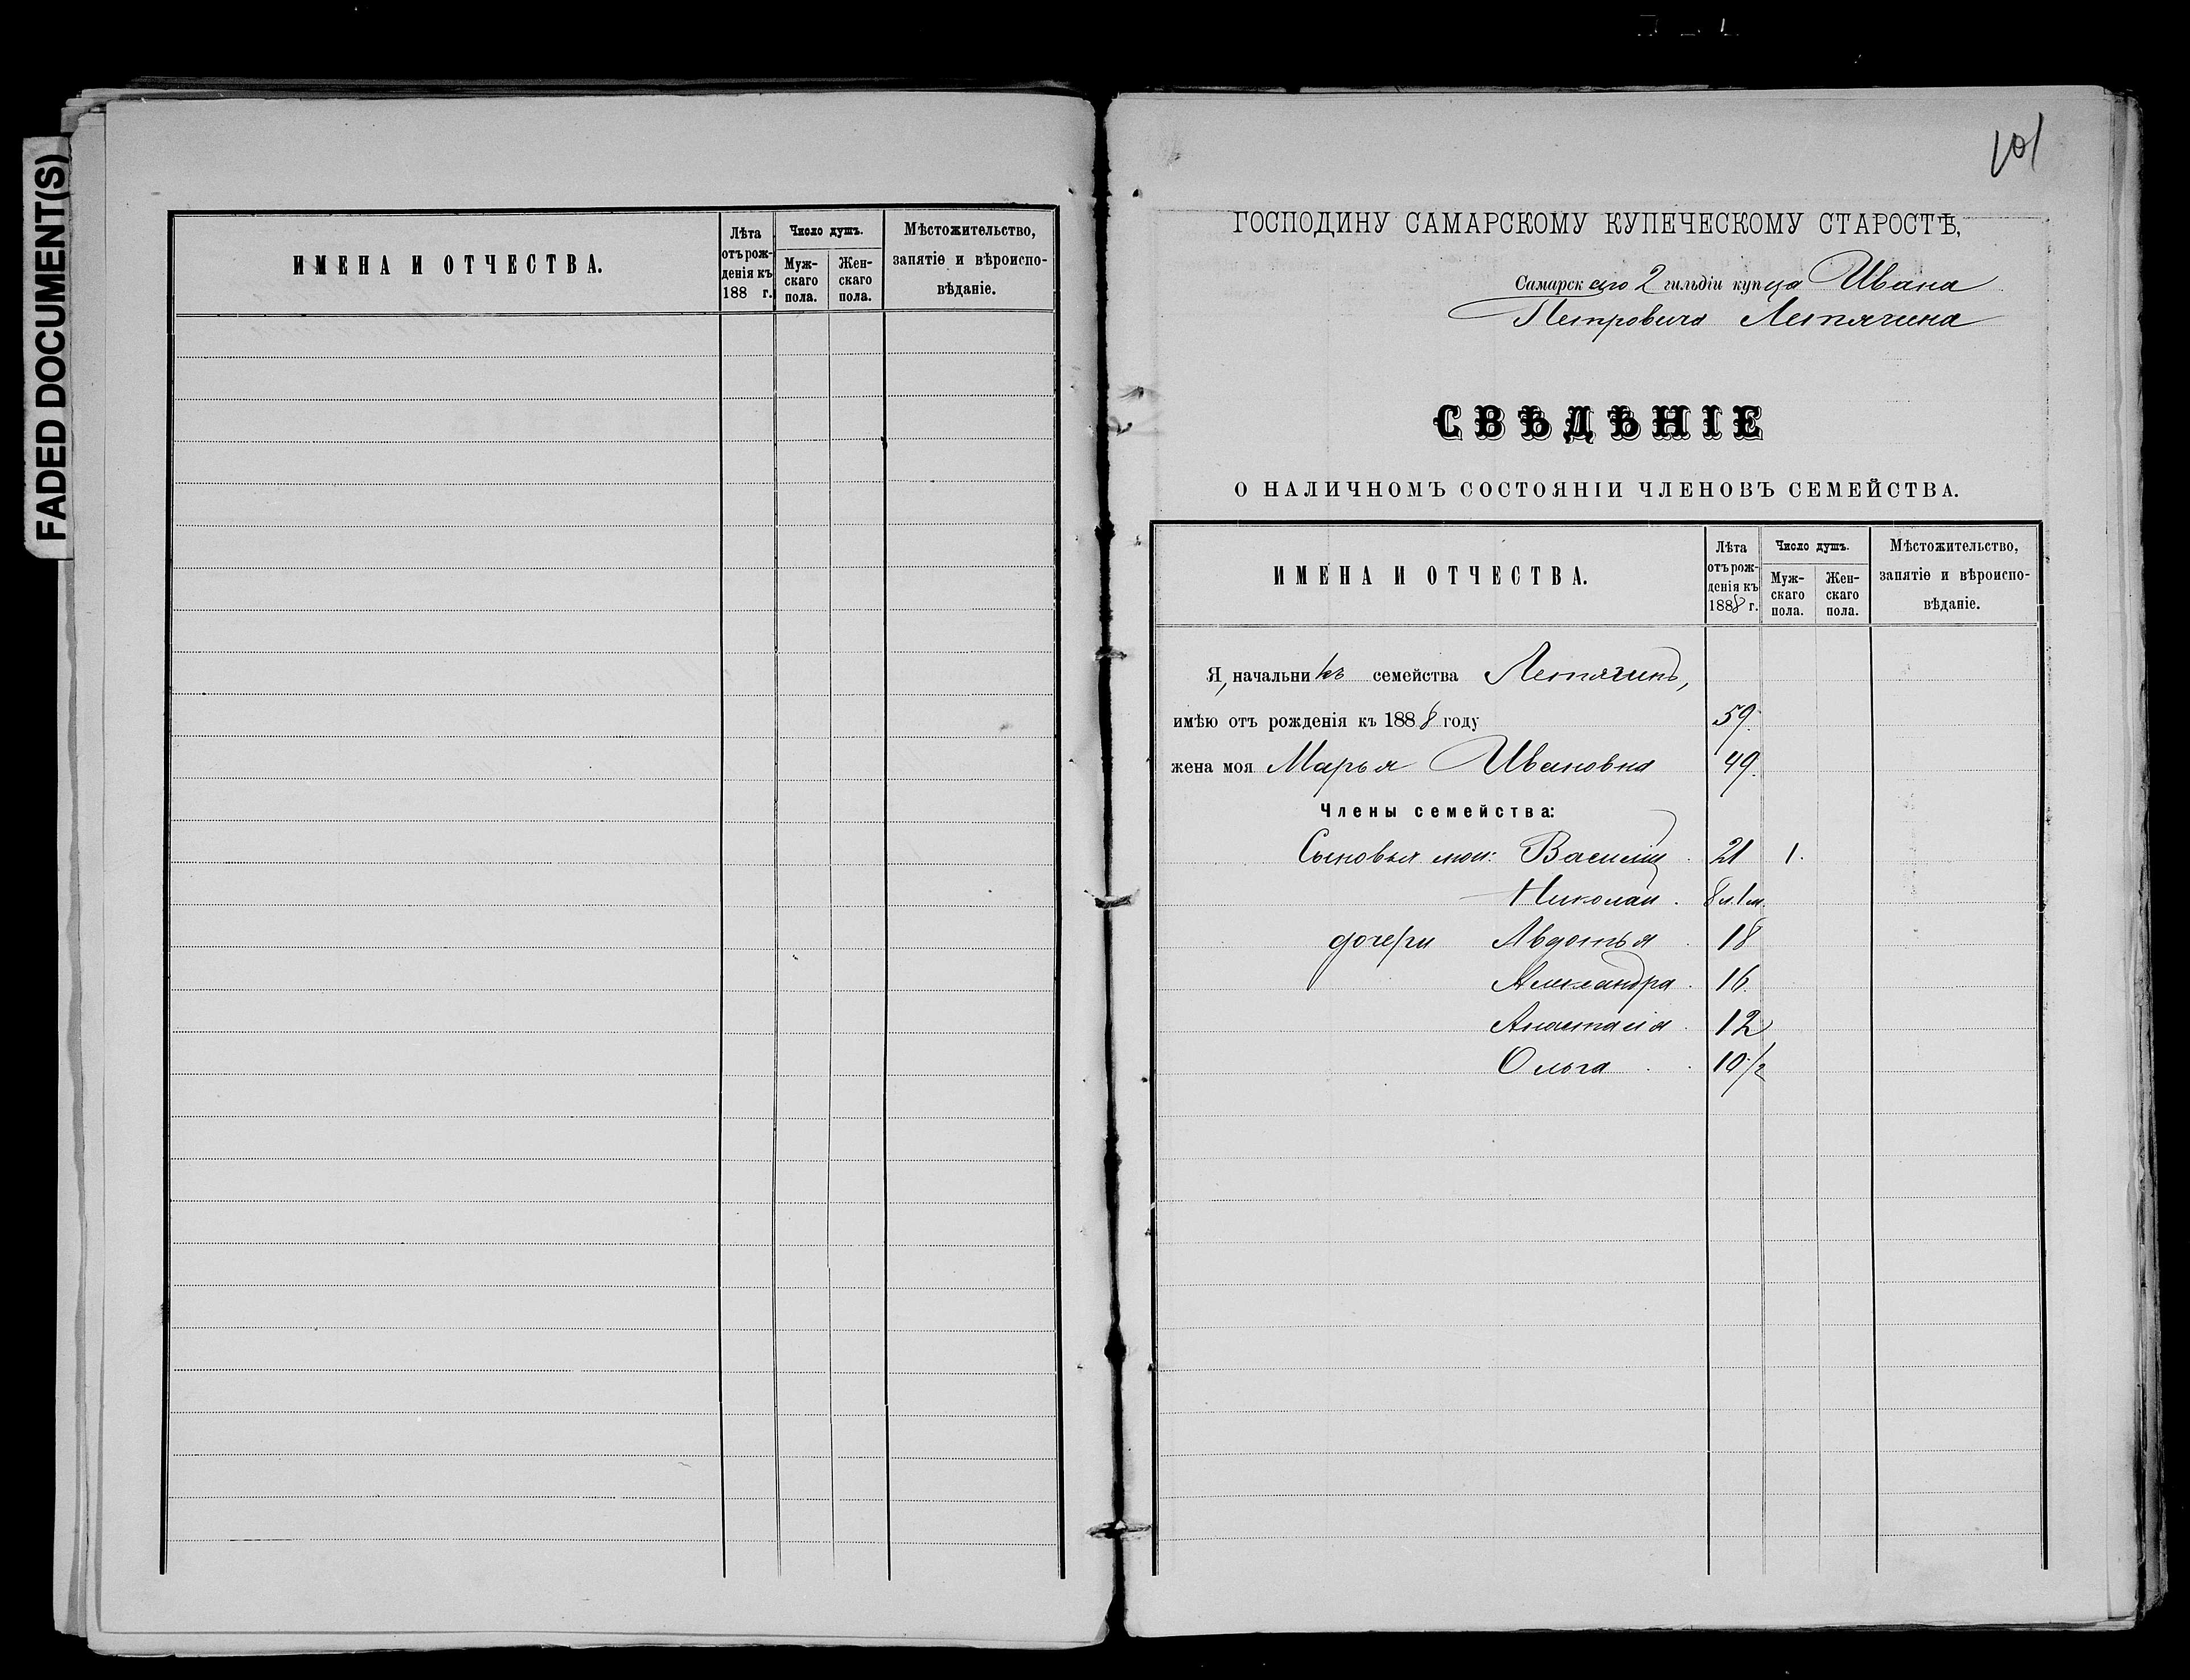 FADED DOCUMENT(S)
ИМЕНА И ОТЧЕСТВА.
Лѣта отъ рожденія къ 188 г.
Число душъ.
Мужскаго пола.
Женскаго пола.
Мѣстожительство, занятіе и вѣроисповѣданіе.
101
ГОСПОДИНУ САМАРСКОМУ КУПЕЧЕСКОМУ СТАРОСТѢ,
Самарскаго 2 гильдіи купца Ивана
Петровича Летягина
СВѢДѢНІЕ
О НАЛИЧНОМЪ СОСТОЯНІИ ЧЛЕНОВЪ СЕМЕЙСТВА.
ИМЕНА И ОТЧЕСТВА.
Лѣта отъ рожденія къ 1888 г.
Число душъ.
Мужскаго пола.
Женскаго пола.
Мѣстожительство, занятіе и вѣроисповѣданіе.
Я, начальникъ семейства Летягинъ,
имѣю отъ рожденія къ 1888 году 59.
жена моя Марья Ивановна 49.
Члены семейства:
Сыновья мои: Василій 21 1.
Николай. 8 л. 1 м.
дочери Авдотья 18
Александра. 16
Анастасія. 12
Ольга 10 1/2